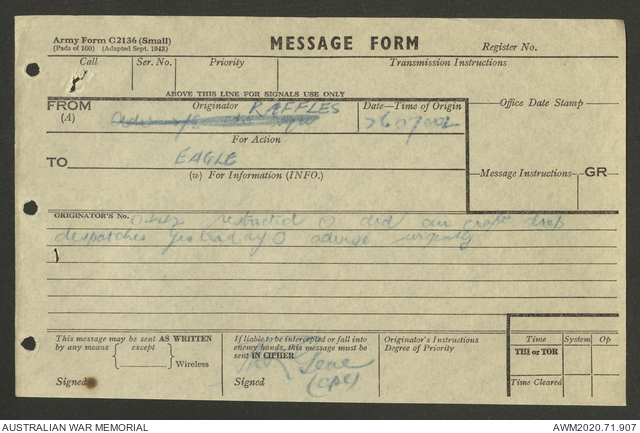 Army Form C2136 (Small)
(Pads of 100) (Adapted Sept. 1943)
MESSAGE FORM
Register No.
Call
Ser. No.
Priority
Transmission Instructions
ABOVE THIS LINE FOR SIGNALS USE ONLY
FROM
(A)
Originator
RAFFLES
Date—Time of Origin
Office Date Stamp
For Action
TO
EAGLE
(w) For Information (INFO.)
Message Instructions
GR
ORIGINATOR'S No.
restricted ⊙ did our drop
despatches yesterday ⊙ advise urgently
This message may be sent AS WRITTEN
by any means except
Wireless
Signed
If liable to be intercepted or fall into
enemy hands, this message must be
sent IN CIPHER
Signed
Originator's Instructions
Degree of Priority
Time
System
Op
THI or TOR
Time Cleared
AUSTRALIAN WAR MEMORIAL
AWM2020.71.907